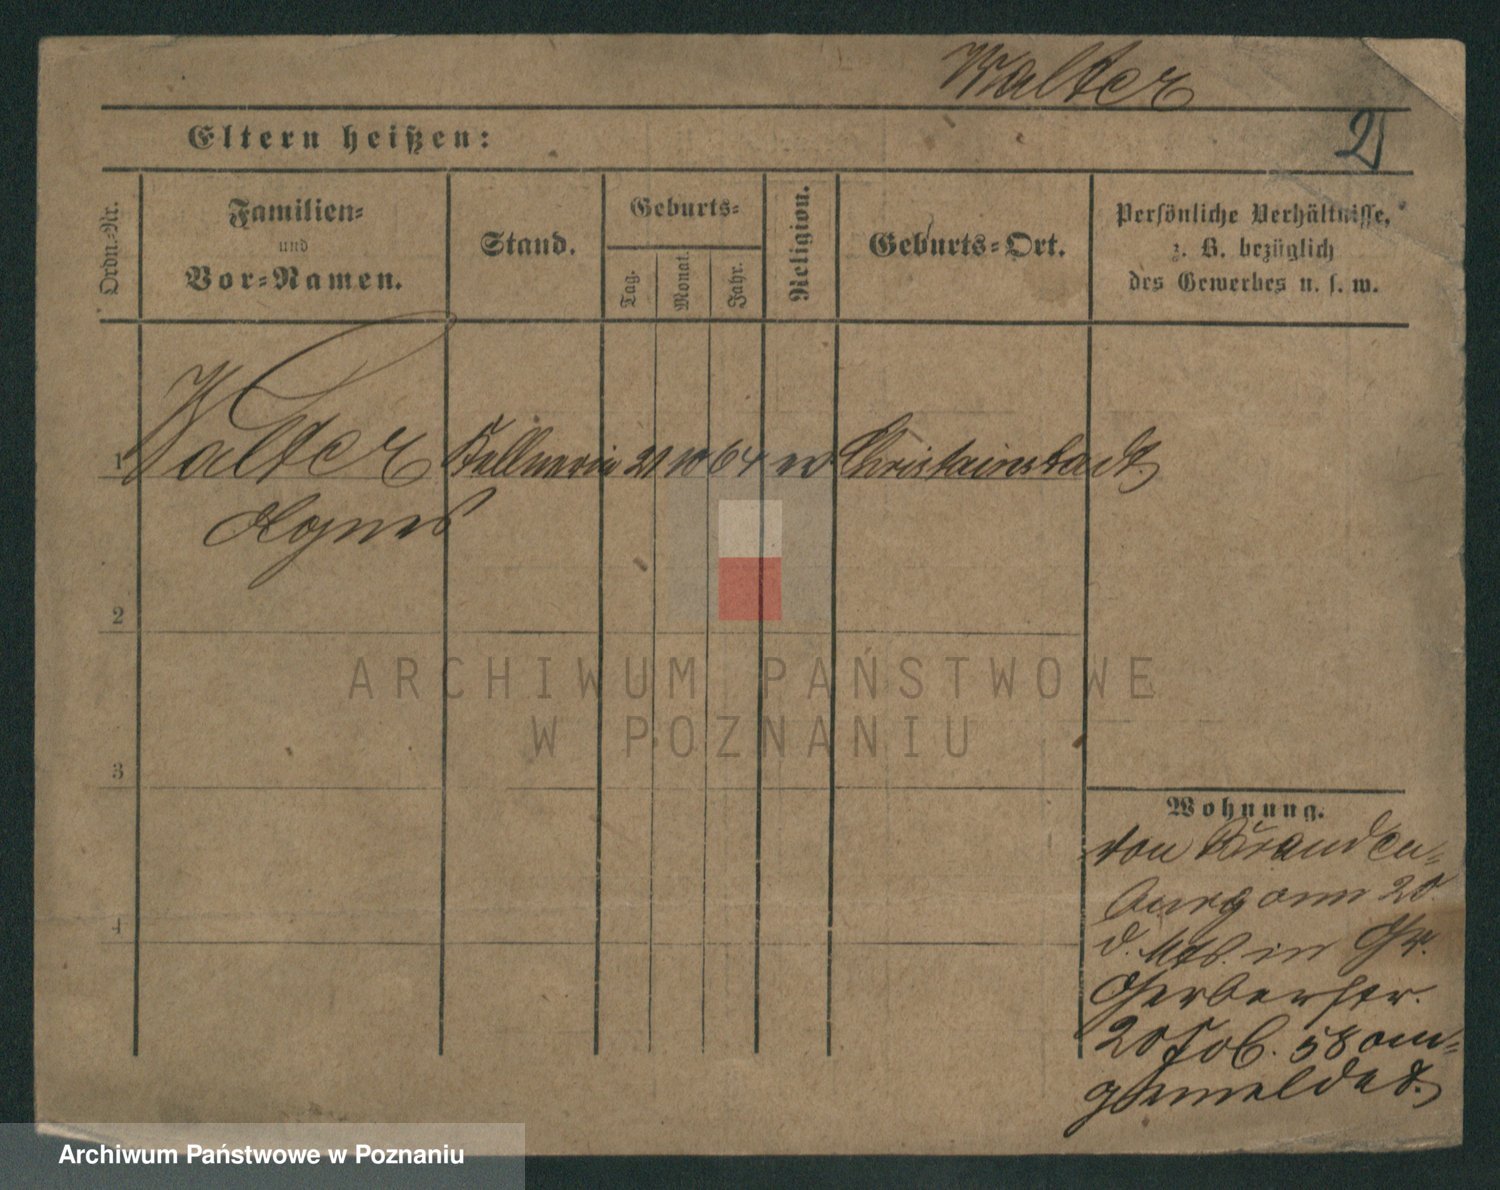 Walter
2
Eltern heißen:
Ordn.-Nr.
Familien-
und
Vor-Namen.
Stand.
Geburts-
Tag.
Monat.
Jahr.
Religion.
Geburts-Ort.
Persönliche Verhältnisse,
z. B. bezüglich
des Gewerbes u. s. w.
1 Walter Kellnerin 21 10 64 ev Christianstadt
Agnes
2
3
4
Wohnung.
von Branden-
burg am 20.
d. Mts. in Gr.
Gerberstr.
20 Fol. 58 an-
gemeldet.
ARCHIWUM PAŃSTWOWE
W POZNANIU
Archiwum Państwowe w Poznaniu